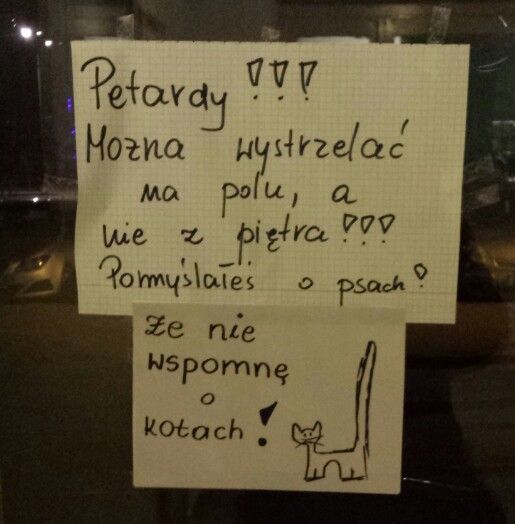 Petardy!!!
Mozna wystrzelać
na polu, a
nie z piętra!!!
Pomyślałeś o psach!
że nie
wspomnę
o
kotach!